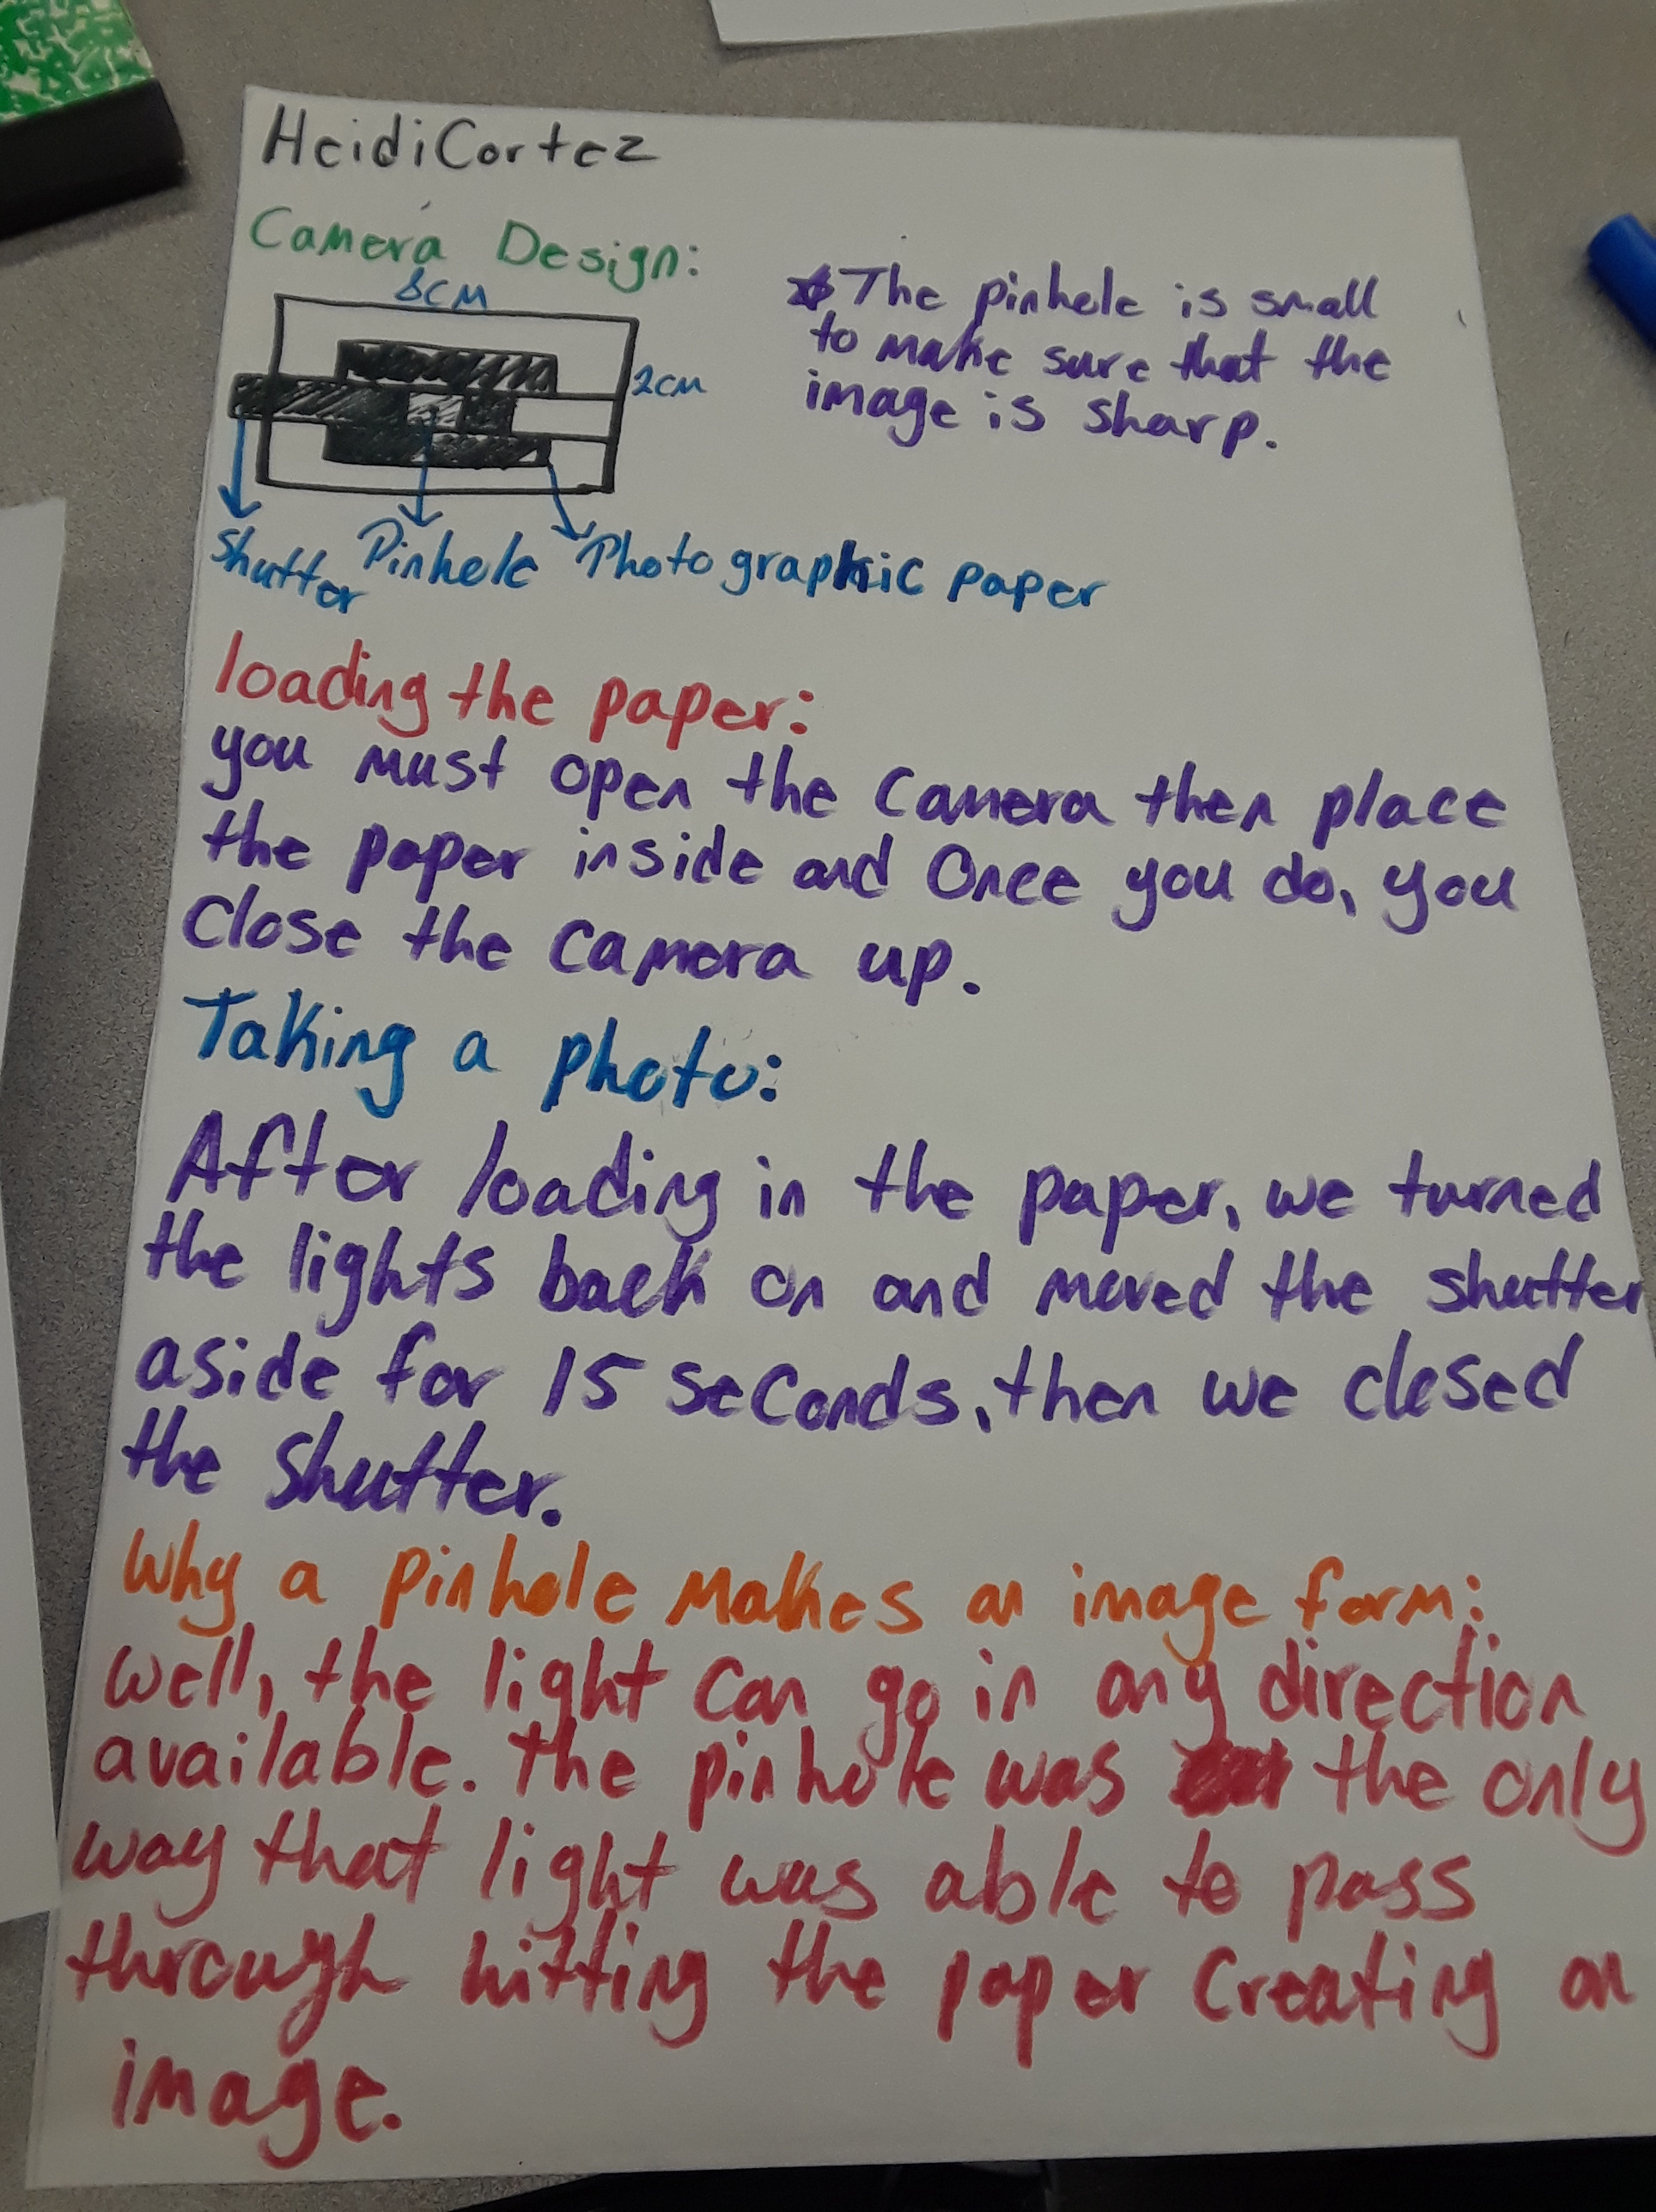 Heidi Cortez
Camera Design:
8cm
2cm
Shutter
Pinhole
Photographic paper
The pinhole is small
to make sure that the
image is sharp.
loading the paper:
you must open the camera then place
the paper inside and Once you do, you
close the camera up.
Taking a photo:
After loading in the paper, we turned
the lights back on and moved the shutter
aside for 15 seconds, then we closed
the shutter.
Why a pinhole makes an image form:
Well, the light can go in any direction
available. the pinhole was the only
way that light was able to pass
through hitting the paper creating an
image.